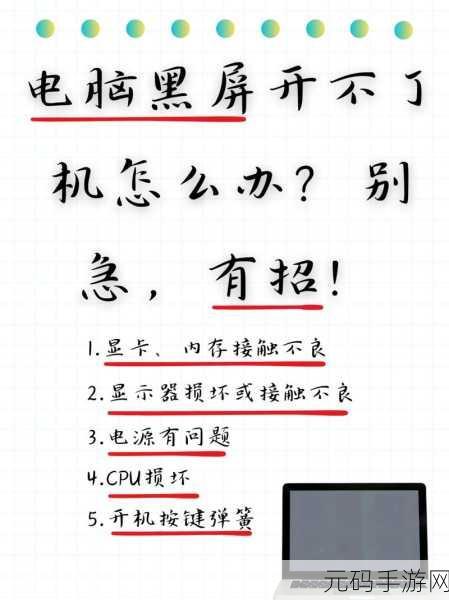 电脑黑屏开不了
机怎么办？别
急，有招！
1.显卡、内存接触不良
2.显示器损坏或接触不良
3.电源有问题
4.CPU损坏
5.开机按键弹簧
元码手游网